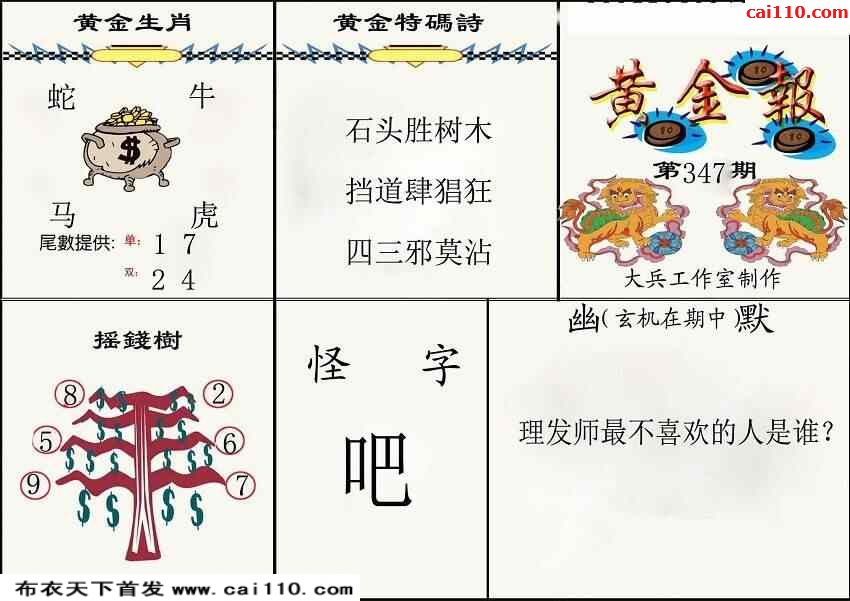 cai110.com
黄金生肖
蛇 牛
$
马 虎
尾數提供: 单: 1 7
双: 2 4
黄金特碼詩
石头胜树木
挡道肆猖狂
四三邪莫沾
黄金報
10
10
10
第347期
大兵工作室制作
摇錢樹
8 2
5 6
9 7
$ $ $ $
$ $ $ $
$ $ $ $
$ $ $ $
怪字
吧
幽(玄机在期中)默
理发师最不喜欢的人是谁?
布衣天下首发 www.cai110.com